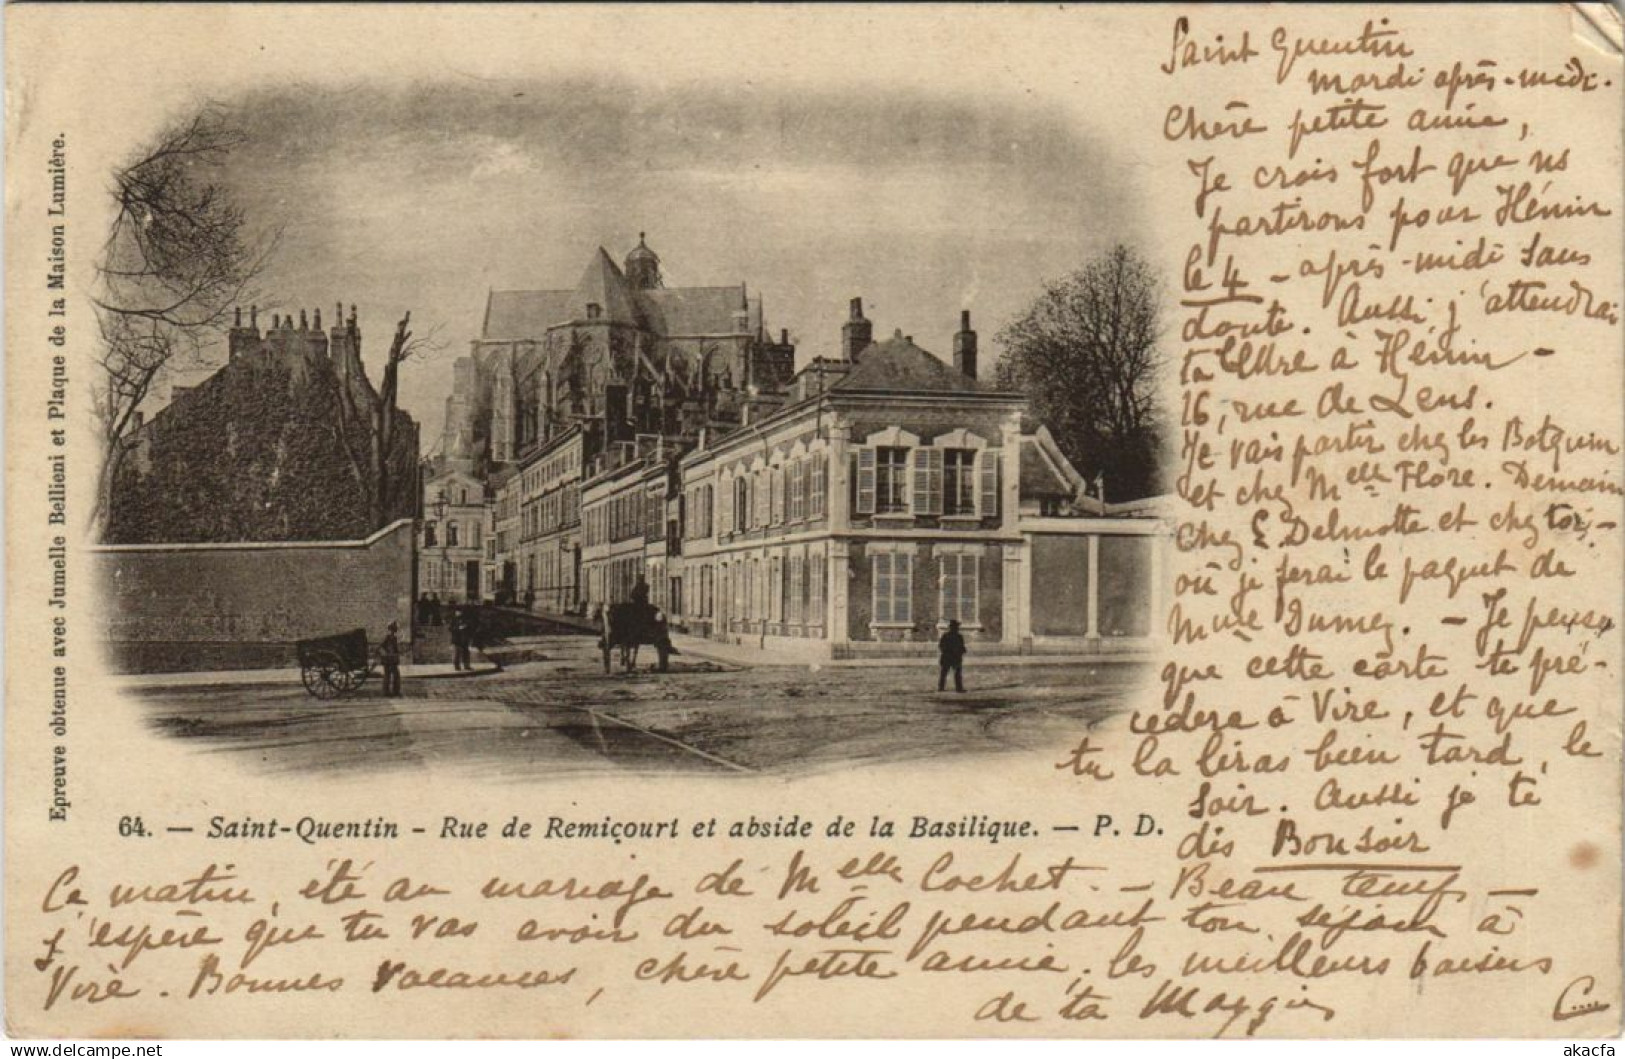 Saint Quentin
mardi après-midi.
Chère petite amie,
Je crois fort que ns
partirons pour Hénin
le 4 - après-midi sans
doute. Aussi j'attendrai
ta lettre à Hénin -
16, rue de Lens.
Je vais partir chez les
et chez Melle Flore. Demain
chez Delmotte et chez toi -
où je ferai le paquet de
Mme Dumez. - Je pense
que cette carte te pré-
cédera à Vire, et que
tu la liras bien tard, le
soir. Aussi je te
dis Bonsoir
Epreuve obtenue avec Jumelle Bellieni et Plaque de la Maison Lumière.
64. — Saint-Quentin - Rue de Remiçourt et abside de la Basilique. — P. D.
Ce matin, été au mariage de Melle Cochet. - Beau temps -
j'espère que tu vas avoir du soleil pendant ton séjour à
Vire. Bonnes vacances, chère petite amie, les meilleurs baisers
de ta
C....
akacfa